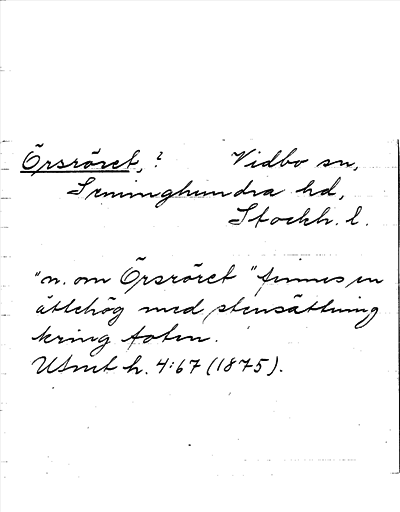 Örsröret, ? Vidbo sn,
Seminghundra hd,
Stockh. l.
"n. om Örsröret "finnes en
ättehög med stensättning
kring foten.
UFmt h. 4:67 (1875).